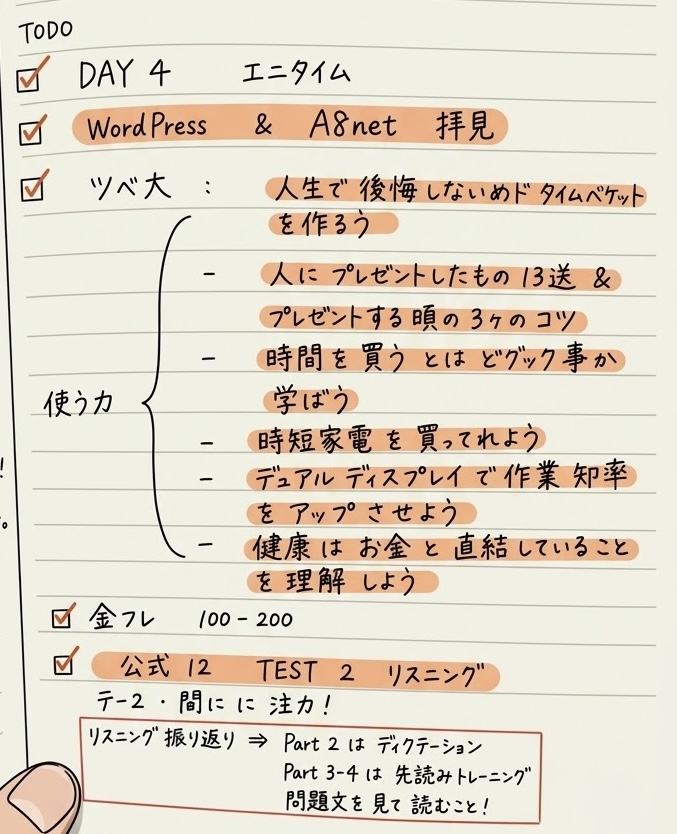 TODO
DAY 4 エニタイム
WordPress & A8net 拝見
ツベ大 : 人生で後悔しないめド タイムペケット
を作ろう
- 人に プレゼントしたもの 13送 &
プレゼントする頃の3ヶのコツ
- 時間を買うとはどグック事か
学ばう
使う力
- 時短家電を買ってれよう
- デュアルディスプレイで作業知率
をアップさせよう
- 健康はお金と直結していること
を理解しよう
金フレ 100-200
公式 12 TEST 2 リスニング
テー2・間にに注力!
リスニング振り返り ⇒ Part 2 は ディクテーション
Part 3-4 は 先読みトレーニング
問題文を見て読むこと!
!
。